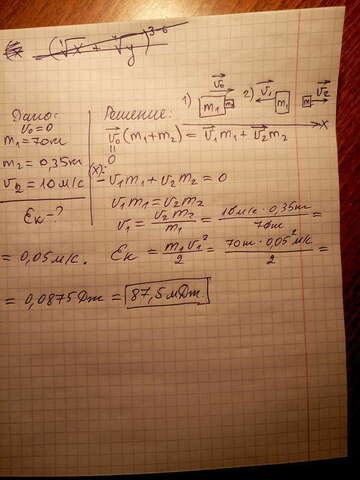 Дано:
v₀=0
m₁=70кг
m₂=0,35кг
v₂=10м/с
Eк-?
Решение:
1) v₀ m₁ m₂ 2) v₁ m₁ m₂ v₂
x
v₀(m₁+m₂) = v₁m₁+v₂m₂
0
(x): -v₁m₁+v₂m₂=0
v₁m₁=v₂m₂
v₁= v₂m₂/m₁ = 10м/с·0,35кг/70кг =
= 0,05м/с. Eк = m₁v₁²/2 = 70кг·0,05²м/с/2 =
= 0,0875Дж = 87,5мДж.